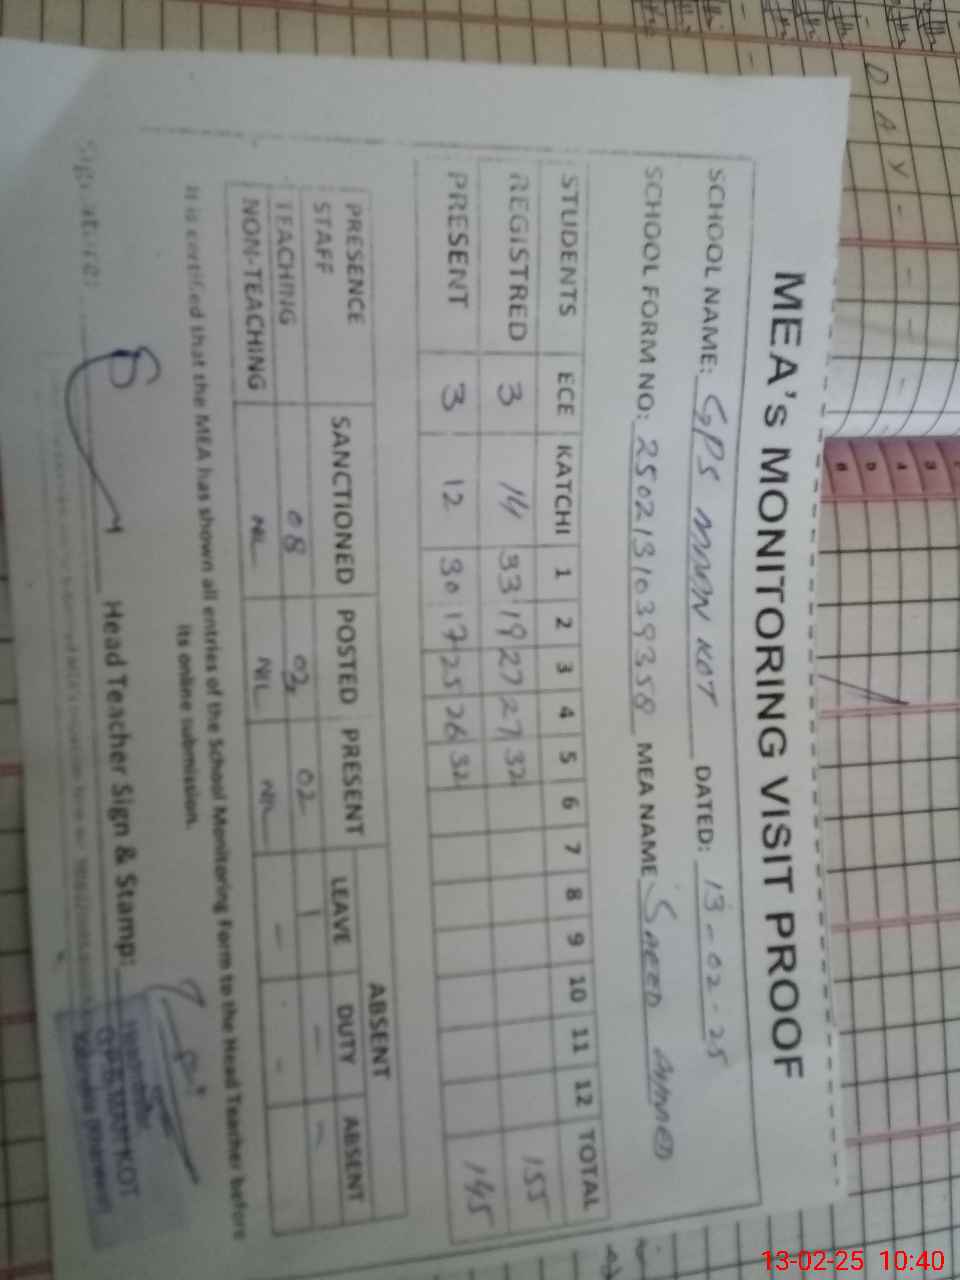 MEA's MONITORING VISIT PROOF
SCHOOL NAME: GPS MAAN KOT DATED: 13-02-25
SCHOOL FORM NO: 25021310393 58 MEA NAME Saeed Ahmed
STUDENTS ECE KATCHI 1 2 3 4 5 6 7 8 9 10 11 12 TOTAL
REGISTRED 3 14 33 19 27 27 32 155
PRESENT 3 12 30 17 25 26 32 145
PRESENCE STAFF SANCTIONED POSTED PRESENT ABSENT
LEAVE DUTY ABSENT
TEACHING 08 02 02 - - -
NON-TEACHING NIL NIL NIL - -
It is certified that the MEA has shown all entries of the School Monitoring Form to the Head Teacher before
its online submission.
Signature: Head Teacher Sign & Stamp:
D A Y
13-02-25 10:40